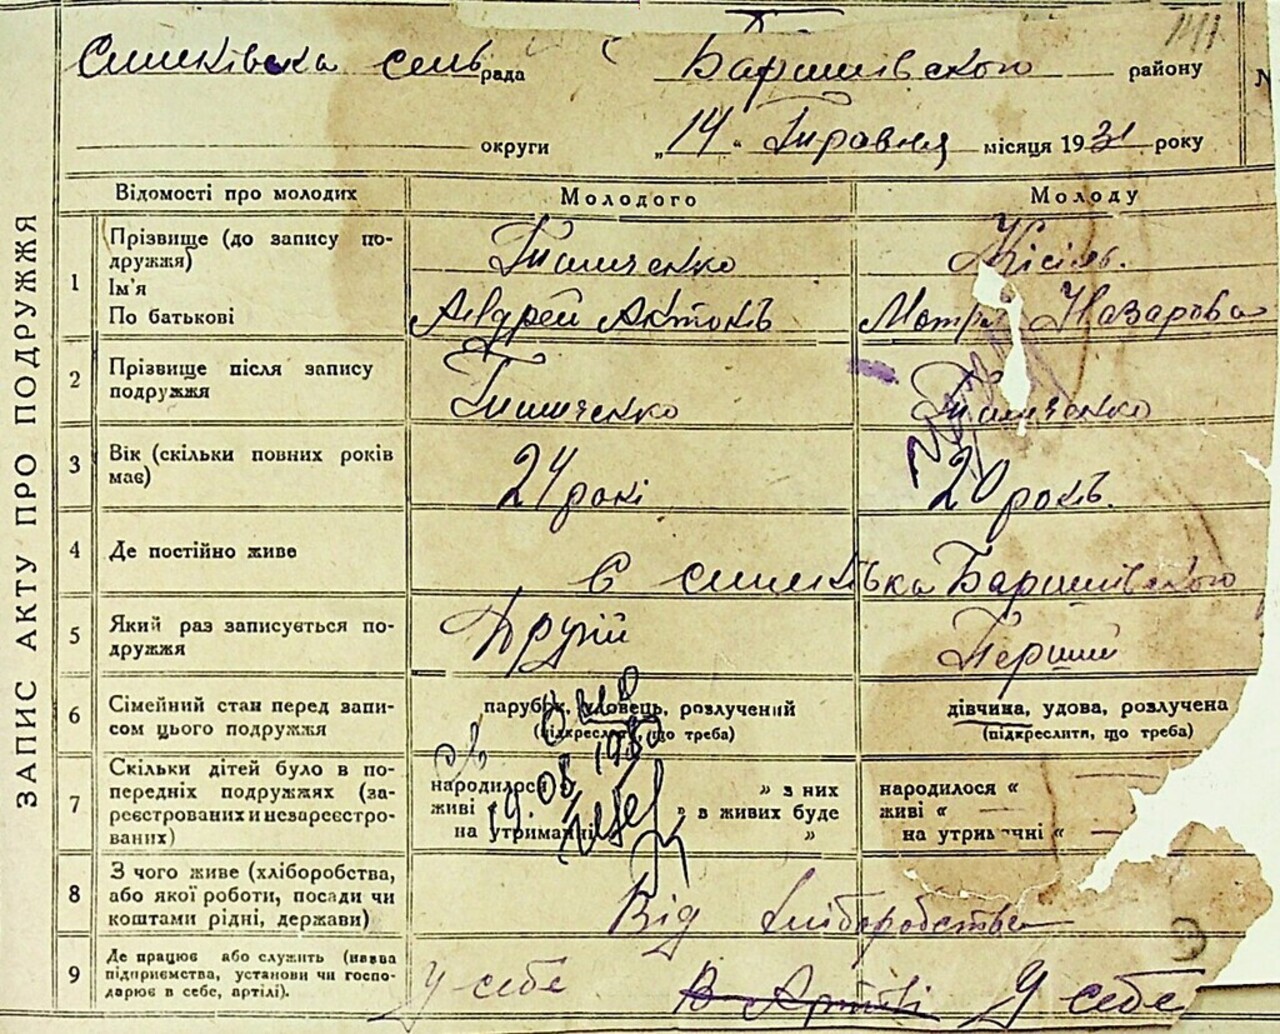 ЗАПИС АКТУ ПРО ПОДРУЖЖЯ
Синківська сель рада Баришівского району
округи „14“ Травня місяця 1931 року
Відомості про молодих Молодого Молоду
1 Прізвище (до запису по-
дружжя) Тимченко Кісіль.
Ім'я
По батькові Андрей Антонів Мотря Назарова
2 Прізвище після запису
подружжя Тимченко Тимченко
3 Вік (скільки повних років
має) 24 рокі 20 років.
4 Де постійно живе С Баришівского
5 Який раз записується по-
дружжя Другій Перший
6 Сімейний стан перед запи-
сом цього подружжя парубок, удовець, розлучений дівчина, удова, розлучена
(підкреслити, що треба) (підкреслити, що треба)
7 Скільки дітей було в по-
передніх подружжях (за-
реєстрованих и незареєстро-
ваних) народилося » з них народилося «
живі » в живих буде живі «
на утриманні » на утриманні «
8 З чого живе (хліборобства,
або якої роботи, посади чи
коштами рідні, держави) Від хліборобства
9 Де працює або служить (назва
підприємства, установи чи госпо-
дарює в себе, артілі). У себе В Артілі У себе